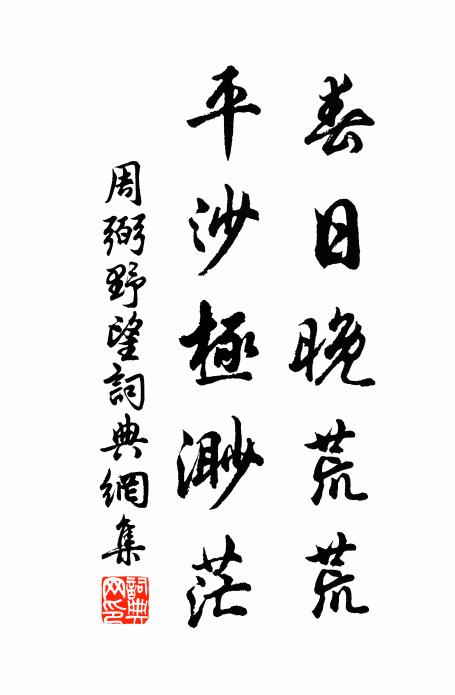 春日晚荒荒
平沙極渺茫
周弼野望詞典網集
詞典网印